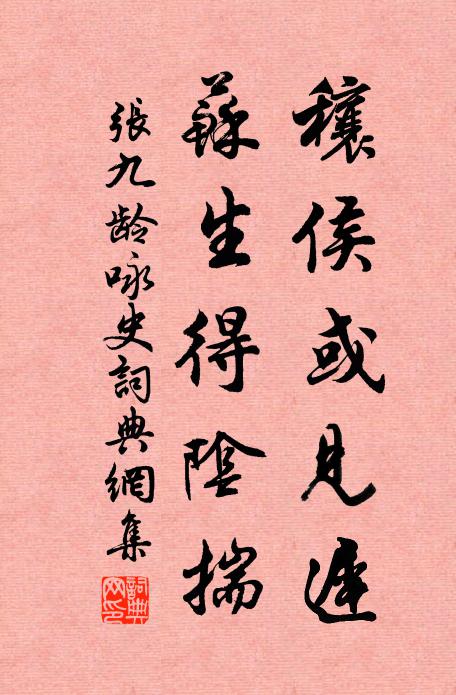 穰侯或見遲
蘇生得陰揣
張九齡咏史詞典網集
詞典网印